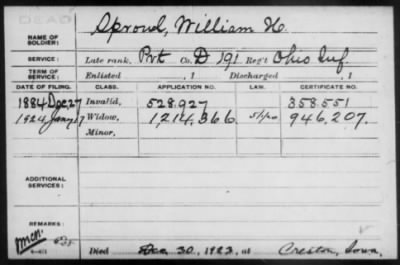 NAME OF SOLDIER: Sproul, William H.
SERVICE: Late rank, Pvt Co. D 191 Reg't Ohio Inf.
TERM OF SERVICE: Enlisted , 1 Discharged , 1
DATE OF FILING. CLASS. APPLICATION NO. LAW. CERTIFICATE NO.
1884 Dec 27 Invalid, 528.927 358.551
1924 Jany 17 Widow, 1,214,366 5/1/20 946,207.
Minor,
ADDITIONAL SERVICES:
REMARKS:
Died Dec 30, 1923, at Creston, Iowa.